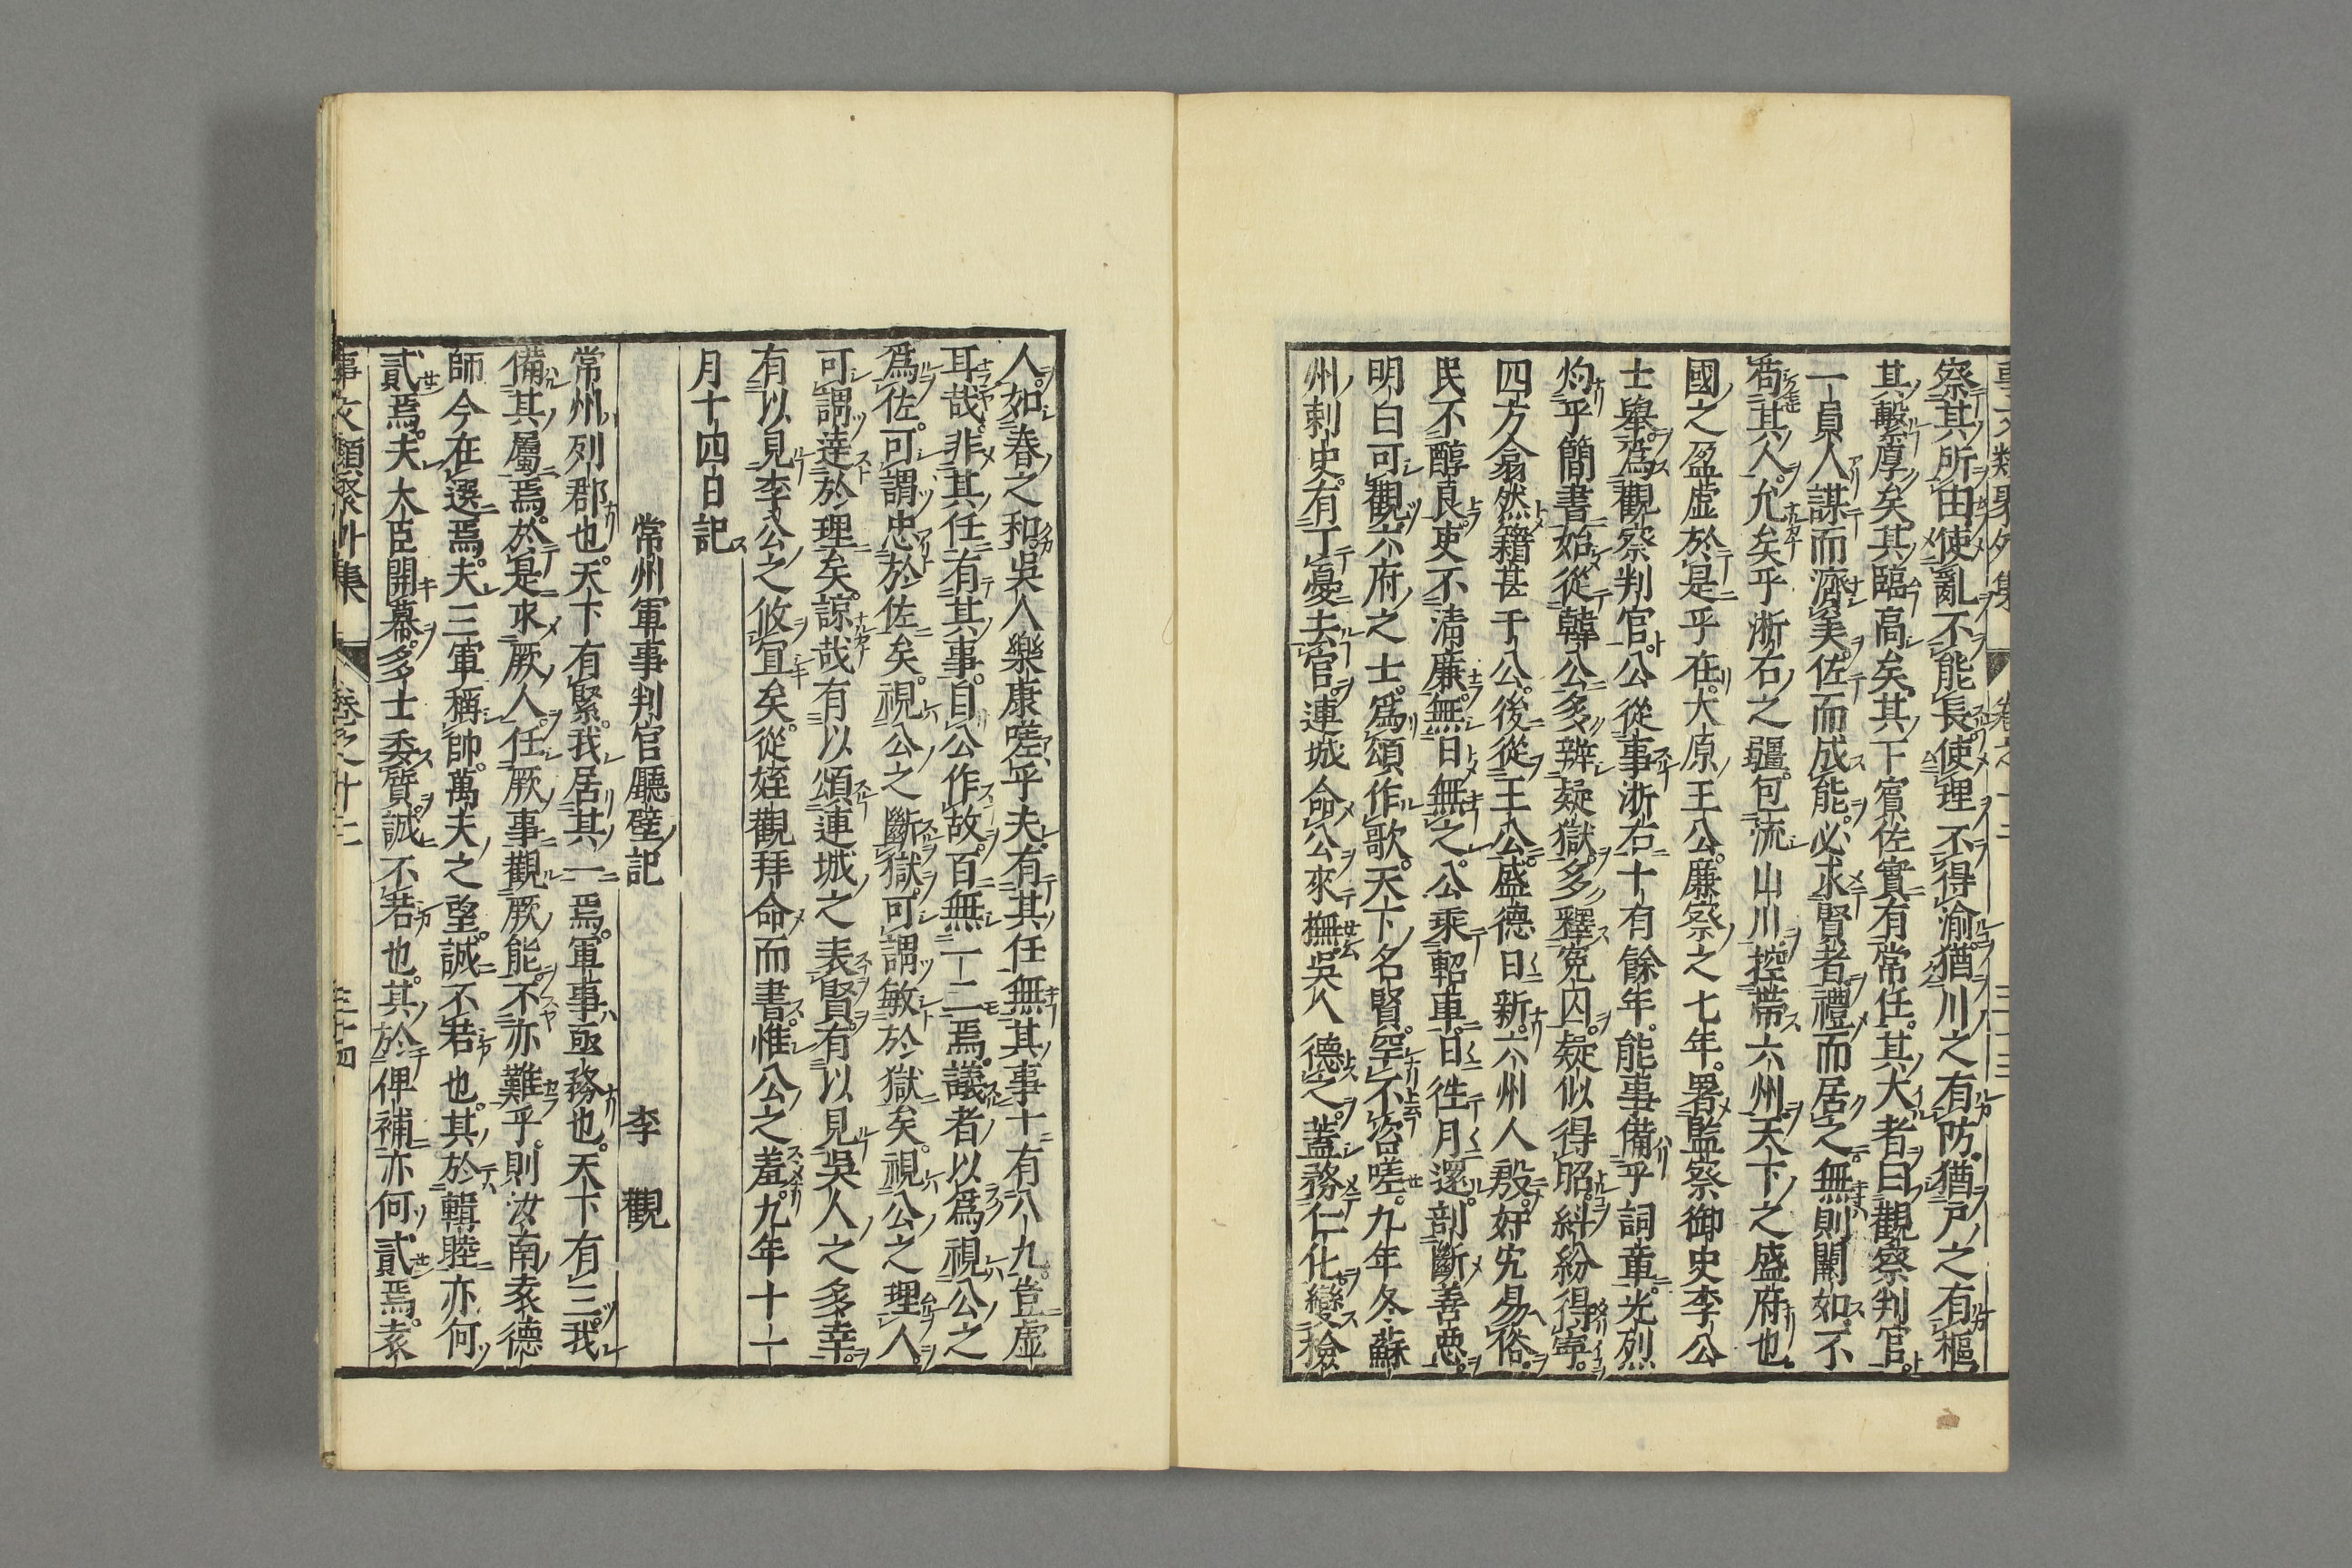 事文類聚外集 卷之十二 三十三
察其所由使亂不能長使理不得渝猶川之有防猶戸之有樞
其繫厚矣其臨高矣其下賔佐實有常任其大者曰觀察判官
一員人謀而濟美佐而成能必求賢者禮而居之無則闕如不
苟其人允矣乎浙右之疆包流山川控帶六州天下之盛府也
國之盈虛於是乎在大原王公廉察之七年署監察御史李公
士舉爲觀察判官公從事浙右十有餘年能事備乎詞章光烈
灼乎簡書始從韓公多辨疑獄多釋冤囚疑似得昭糾紛得寧
四方翕然籍甚于公後從王公盛德日新六州人殷奸宄易俗
民不醇良吏不淸廉無日無之公乘軺車日徃月還剖斷善惡
明白可觀六府之士爲頌作歌天下名賢罕不咨嗟九年冬蘇
州刺史有丁憂去官連城命公來撫吳人德之蓋務仁化變險
人如春之和吳人樂康嗟乎夫有其任無其事十有八九豈虛
耳哉非其任有其事自公作故百無一二焉議者以爲視公之
爲佐可謂忠於佐矣視公之斷獄可謂敏於獄矣視公之理人
可謂逹於理矣諒哉有以頌連城之表賢有以見吳人之多幸
有以見李公之攸宜矣從姪觀拜命而書惟公之羞九年十一
月十四日記
常州軍事判官廳壁記 李觀
常州列郡也天下有緊我居其一焉軍事亟務也天下有三我
備其屬焉於是求厥人任厥事觀厥能不亦難乎則汝南袁德
師今在選焉夫三軍稱帥萬夫之望誠不若也其於輯睦亦何
貳焉夫大臣開幕多士委質誠不若也其於俾補亦何貳焉袁
事文類聚外集 卷之十二 三十四